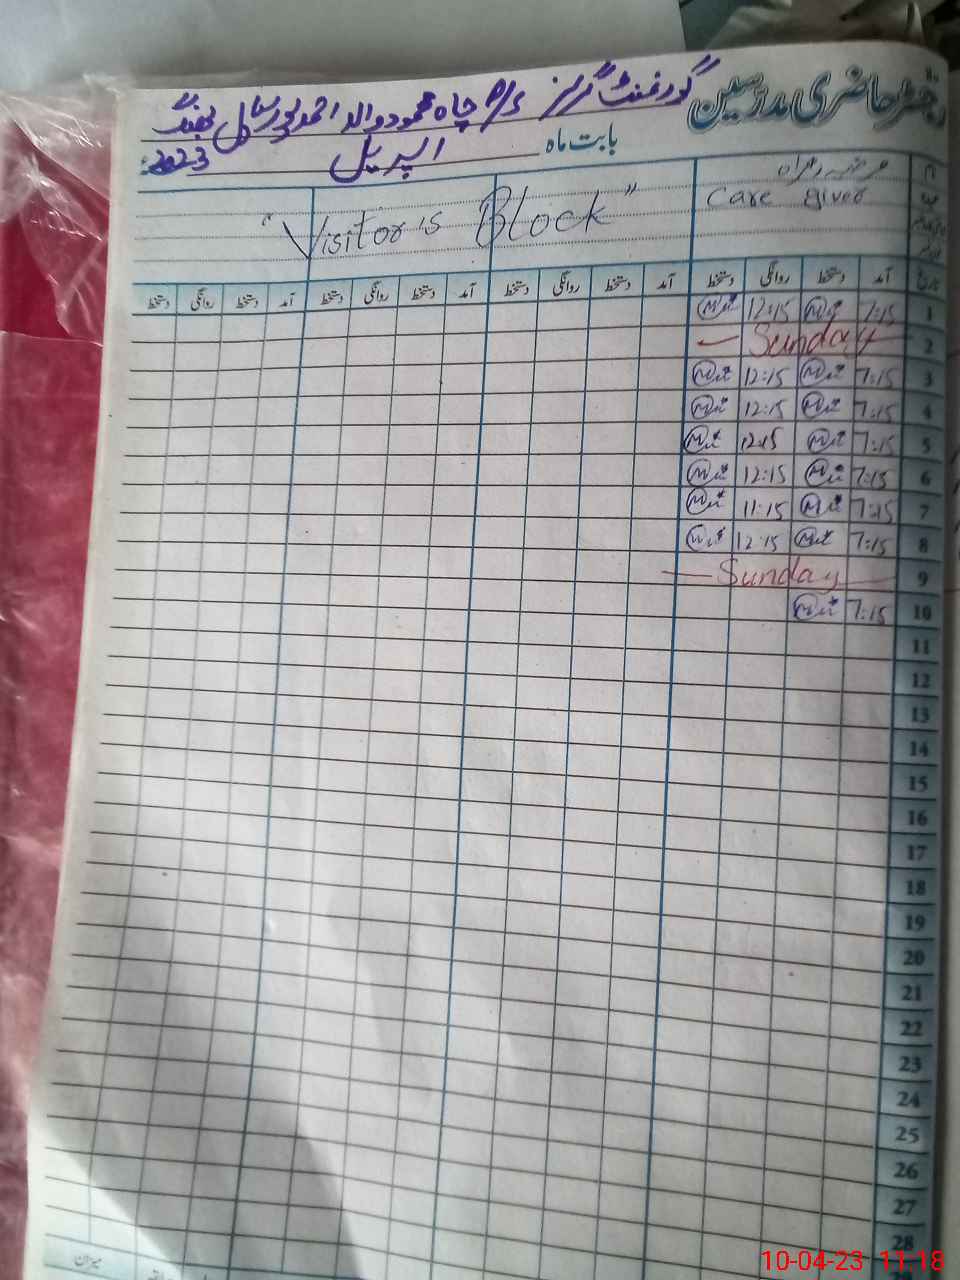 رجسٹر حاضری مدرسین گورنمنٹ گرلز چاہ محمود والہ احمد پور سیال جھنگ
بابت ماہ اپریل 2023ء
care giver
"Visitor's Block"
تاریخ آمد دستخط روانگی دستخط آمد دستخط روانگی دستخط آمد دستخط روانگی دستخط آمد دستخط روانگی دستخط
1 7:15 12:15
2 Sunday
3 7:15 12:15
4 7:15 12:15
5 7:15 12:15
6 7:15 12:15
7 7:15 11:15
8 7:15 12:15
9 Sunday
10 7:15
11
12
13
14
15
16
17
18
19
20
21
22
23
24
25
26
27
28
میزان
10-04-23 11:18